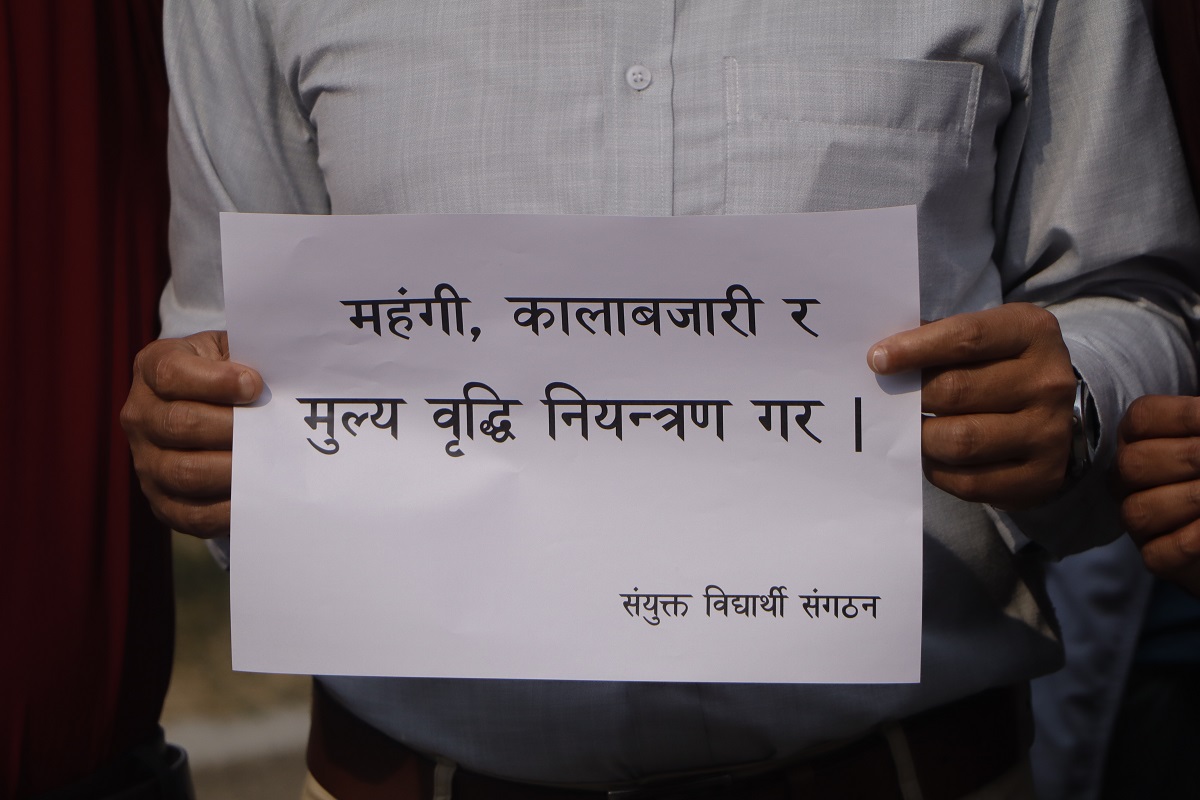 महंगी, कालाबजारी र
मुल्य वृद्धि नियन्त्रण गर |
संयुक्त विद्यार्थी संगठन